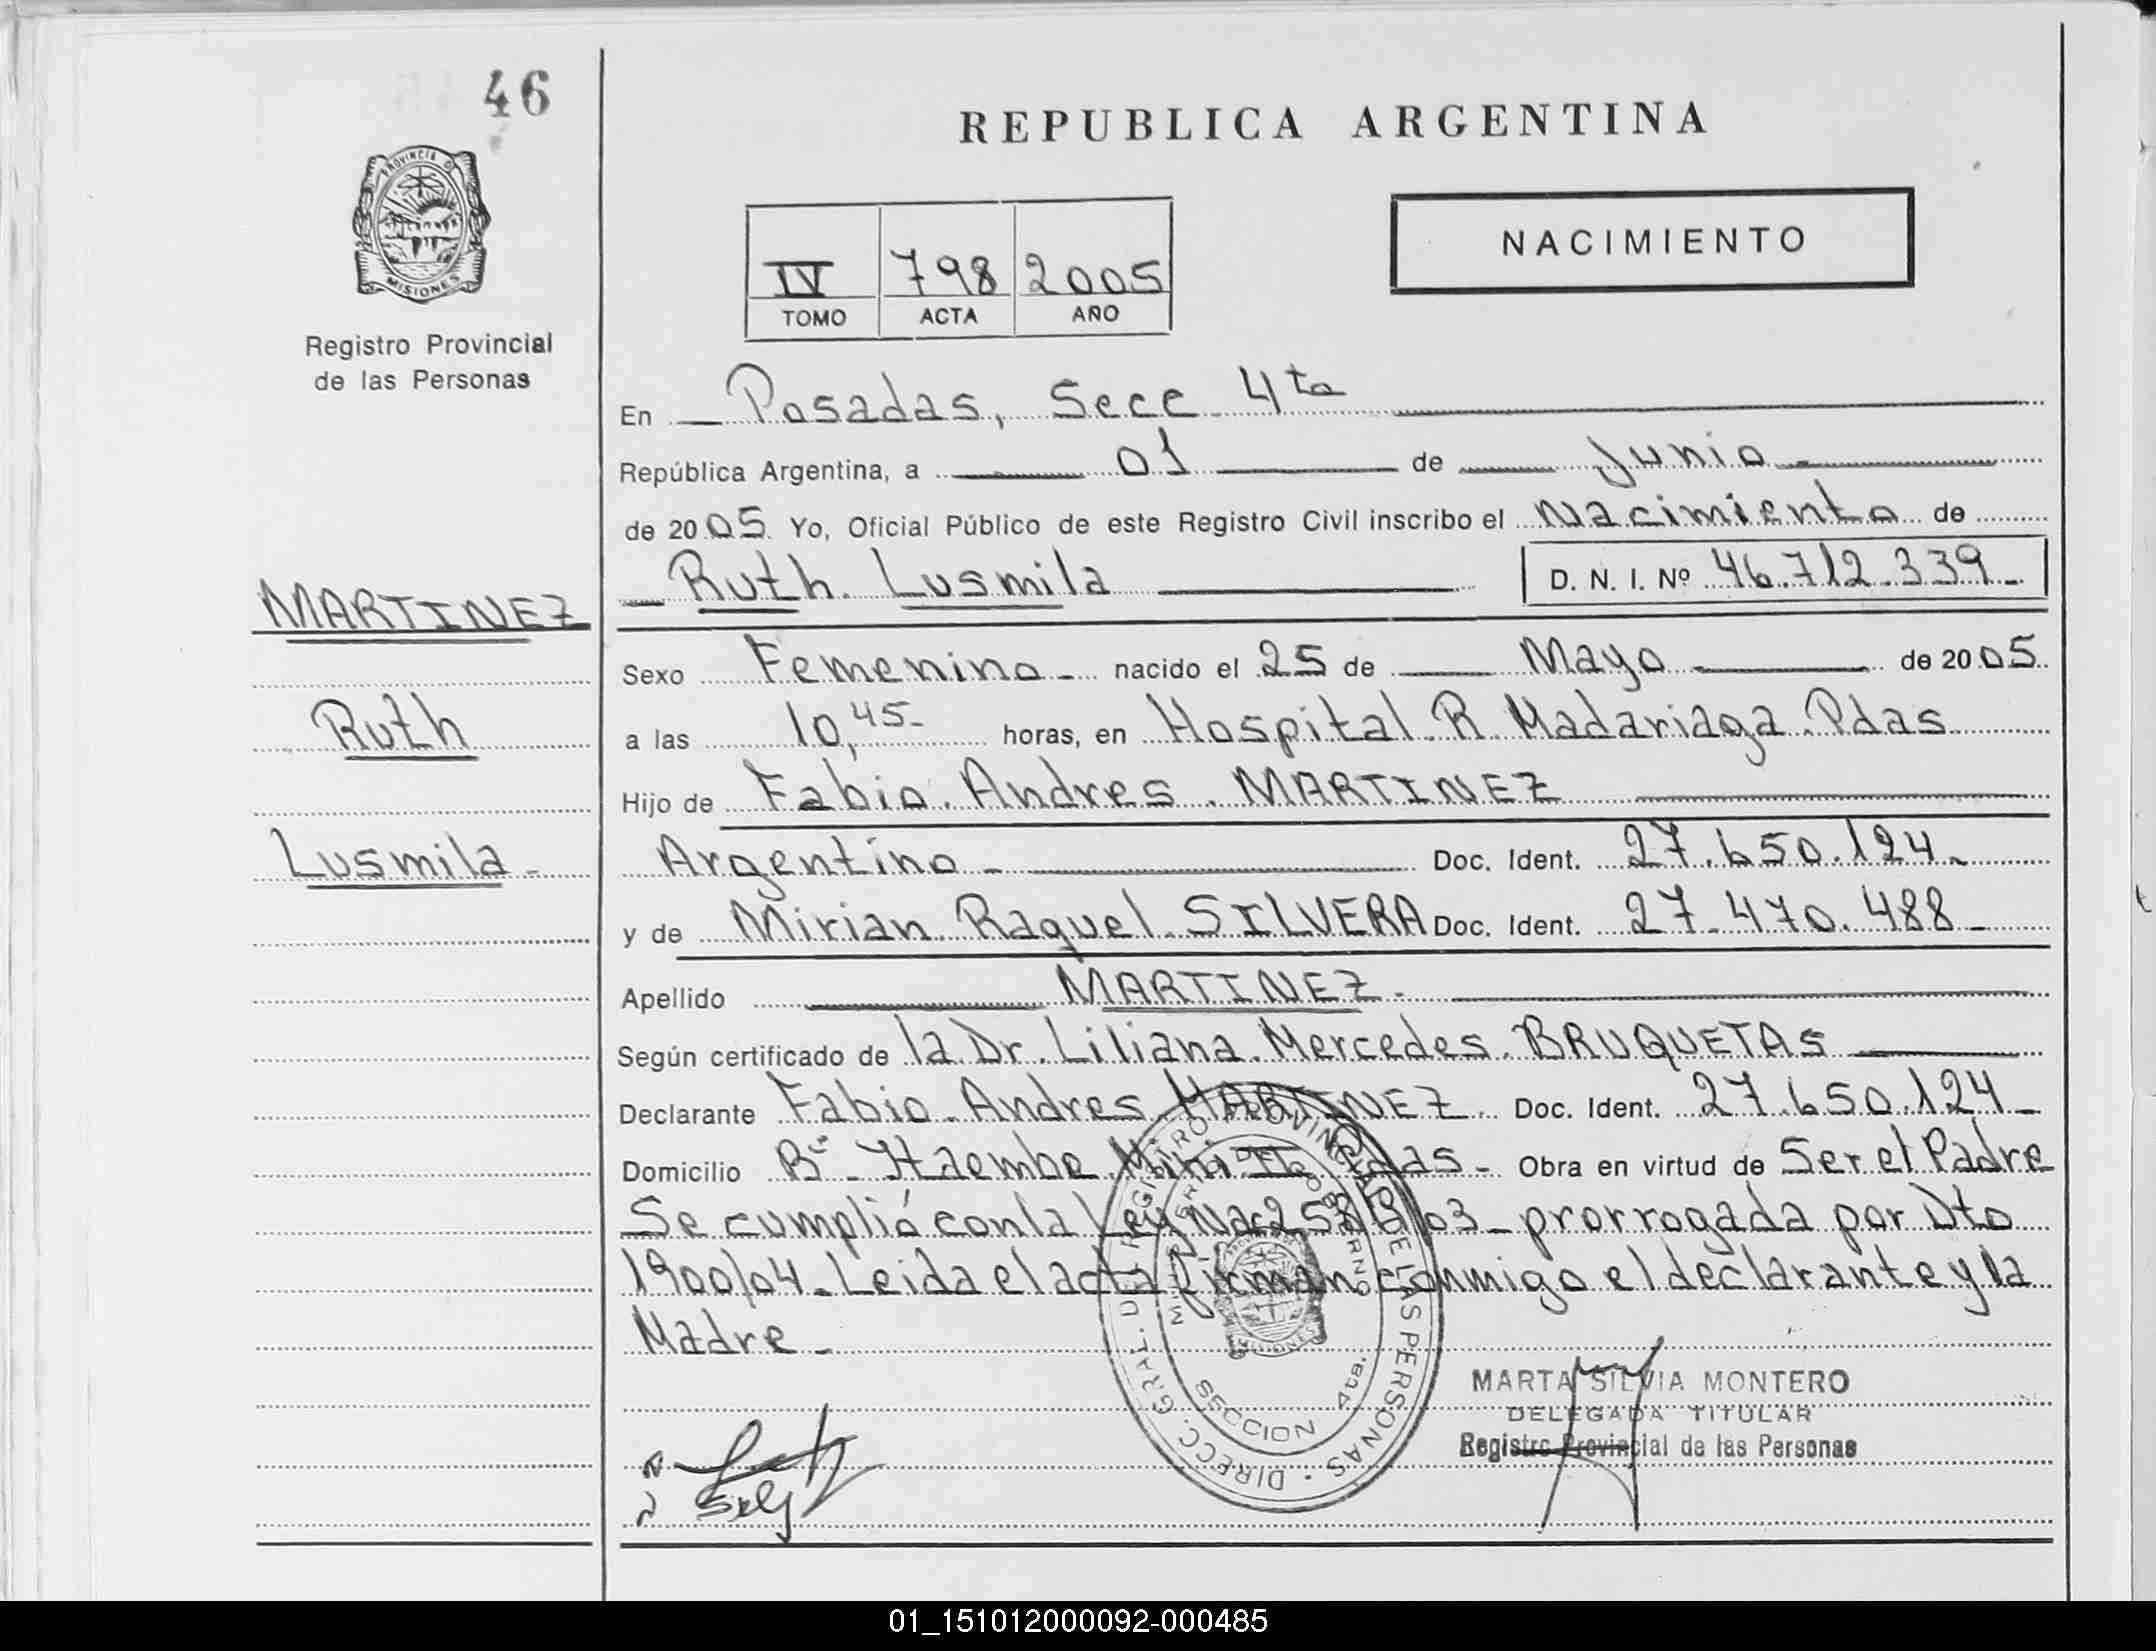 46
PROVINCIA DE
MISIONES
Registro Provincial
de las Personas
MARTINEZ
Ruth
Lusmila -
REPUBLICA ARGENTINA
NACIMIENTO
IV 798 2005
TOMO ACTA AÑO
En Posadas, Secc 4ta
República Argentina, a 01 de Junio
de 2005. Yo, Oficial Público de este Registro Civil inscribo el Nacimiento de
Ruth Lusmila D. N. I. Nº 46.712.339
Sexo Femenino - nacido el 25 de Mayo de 2005
a las 10,45- horas, en Hospital R. Madariaga. Pdas
Hijo de Fabio Andres MARTINEZ
Argentino - Doc. Ident. 27.650.124-
y de Mirian Raquel SILVERA Doc. Ident. 27.470.488-
Apellido MARTINEZ -
Según certificado de la Dr. Liliana Mercedes BRUQUETAS
Declarante Fabio Andres MARTINEZ Doc. Ident. 27.650.124-
Domicilio Bº Itaembe Mini II Pdas - Obra en virtud de Ser el Padre
Se cumplió con la Ley Nac 25819/03 - prorrogada por Dto
1900/04. Leida el acta firman conmigo el declarante y la
Madre -
DIRECC. GRAL. DEL REGISTRO PROVINCIAL DE LAS PERSONAS
SECCION 4ta.
MARTA SILVIA MONTERO
DELEGADA TITULAR
Registro Provincial de las Personas
01_151012000092-000485